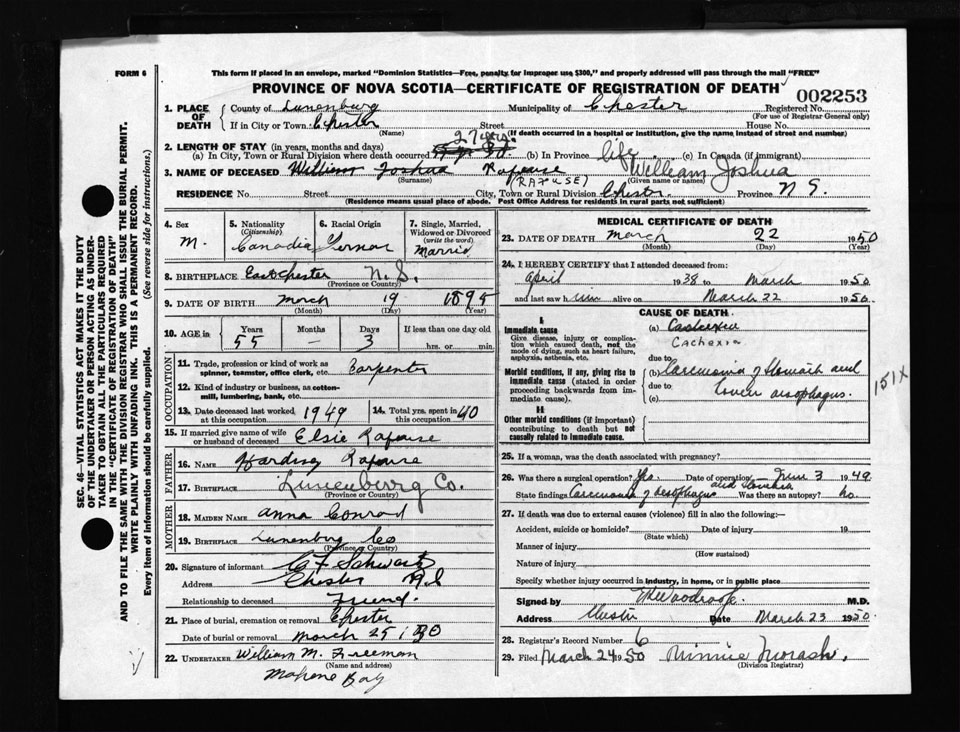 FORM 6
This form if placed in an envelope, marked "Dominion Statistics—Free, penalty for improper use $300," and properly addressed will pass through the mail "FREE"
PROVINCE OF NOVA SCOTIA—CERTIFICATE OF REGISTRATION OF DEATH
002253
1. PLACE OF DEATH
County of Lunenburg Municipality of Chester Registered No.
(For use of Registrar General only)
If in City or Town Chester Street House No.
(Name) (If death occurred in a hospital or institution, give the name instead of street and number)
27 yrs.
2. LENGTH OF STAY (in years, months and days)
(a) In City, Town or Rural Division where death occurred (b) In Province life (c) In Canada (if immigrant)
3. NAME OF DECEASED William Joshua Rafuse William Joshua
(Surname) (RAFUSE) (Given name or names)
RESIDENCE No. Street City, Town or Rural Division Chester Province N S.
(Residence means usual place of abode. Post Office Address for residents in rural parts not sufficient)
4. Sex
M.
5. Nationality
(Citizenship)
Canadia
6. Racial Origin
German
7. Single, Married, Widowed or Divorced
(write the word)
Marrid
8. BIRTHPLACE East Chester N. S.
(Province or Country)
9. DATE OF BIRTH March 19 1895
(Month) (Day) (Year)
10. AGE in
Years Months Days If less than one day old
55 — 3 hrs. or min.
OCCUPATION
11. Trade, profession or kind of work as spinner, teamster, office clerk, etc. Carpenter
12. Kind of industry or business, as cotton-mill, lumbering, bank, etc.
13. Date deceased last worked at this occupation 1949
14. Total yrs. spent in this occupation 40
15. If married give name of wife or husband of deceased Elsie Rafuse
FATHER
16. NAME Harding Rafuse
17. BIRTHPLACE Lunenburg Co.
(Province or Country)
MOTHER
18. MAIDEN NAME Anna Conrad
19. BIRTHPLACE Lunenburg Co
(Province or Country)
20. Signature of informant Schwartz
Address Chester N.S
Relationship to deceased Friend.
21. Place of burial, cremation or removal Chester
Date of burial or removal March 25 1950
22. UNDERTAKER William M. Freeman
(Name and address)
Mahone Bay
MEDICAL CERTIFICATE OF DEATH
23. DATE OF DEATH March 22 1950
(Month) (Day) (Year)
24. I HEREBY CERTIFY that I attended deceased from:
April 1938 to March 1950
and last saw him alive on March 22 1950.
CAUSE OF DEATH
I
Immediate cause
Give disease, injury or complication which caused death, not the mode of dying, such as heart failure, asphyxia, asthenia, etc.
(a) Cachexia
Cachexia
due to
Morbid conditions, if any, giving rise to immediate cause (stated in order proceeding backwards from immediate cause).
(b) Carcinoma of Stomach and
due to
(c) Lower oesophagus.
151X
II
Other morbid conditions (if important) contributing to death but not causally related to immediate cause.
25. If a woman, was the death associated with pregnancy?
26. Was there a surgical operation? Yes. Date of operation June 3 1949
State findings Carcinoma of oesophagus and Stomach Was there an autopsy? No.
27. If death was due to external causes (violence) fill in also the following:—
Accident, suicide or homicide? Date of injury 19
(State which)
Manner of injury
(How sustained)
Nature of injury
Specify whether injury occurred in industry, in home, or in public place
Signed by Woodroofe. M.D.
Address Chester Date March 23 1950.
28. Registrar's Record Number 6
29. Filed March 24 1950 Minnie Morash.
(Division Registrar)
SEC. 46—VITAL STATISTICS ACT MAKES IT THE DUTY OF THE UNDERTAKER OR PERSON ACTING AS UNDERTAKER TO OBTAIN ALL THE PARTICULARS REQUIRED IN THE "CERTIFICATE OF REGISTRATION OF DEATH"
AND TO FILE THE SAME WITH THE DIVISION REGISTRAR WHO SHALL ISSUE THE BURIAL PERMIT.
WRITE PLAINLY WITH UNFADING INK. THIS IS A PERMANENT RECORD.
Every item of information should be carefully supplied. (See reverse side for instructions.)